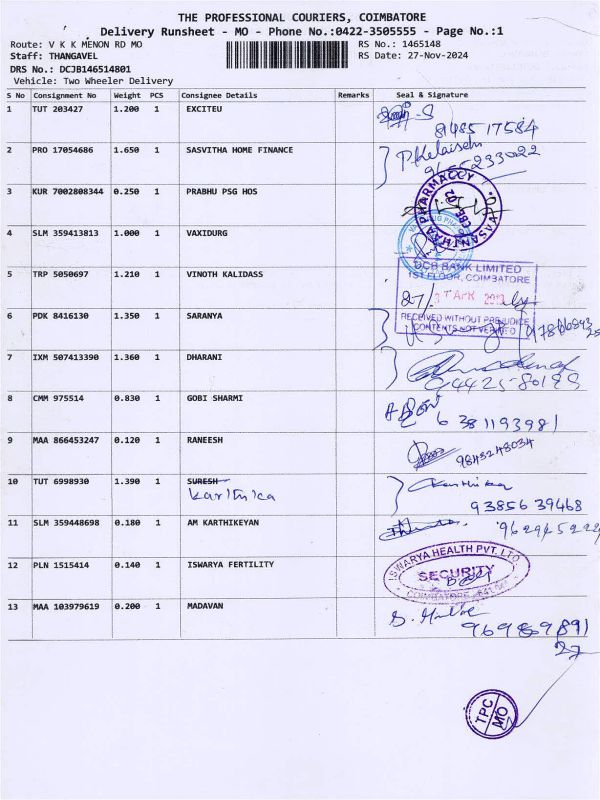 THE PROFESSIONAL COURIERS, COIMBATORE
Delivery Runsheet - MO - Phone No.:0422-3505555 - Page No.:1
Route: V K K MENON RD MO
RS No.: 1465148
Staff: THANGAVEL
RS Date: 27-Nov-2024
DRS No.: DCJB146514801
Vehicle: Two Wheeler Delivery
S No Consignment No Weight PCS Consignee Details Remarks Seal & Signature
1 TUT 203427 1.200 1 EXCITEU
8148517584
2 PRO 17054686 1.650 1 SASVITHA HOME FINANCE
3 KUR 7002808344 0.250 1 PRABHU PSG HOS
VASANTHAA PHARMACY
CBE
4 SLM 359413813 1.000 1 VAXIDURG
5 TRP 5050697 1.210 1 VINOTH KALIDASS
DCB BANK LIMITED
1ST FLOOR, COIMBATORE
RECEIVED WITHOUT PREJUDICE
CONTENTS NOT VERIFIED
6 PDK 8416130 1.350 1 SARANYA
7 IXM 507413390 1.360 1 DHARANI
8 CMM 975514 0.830 1 GOBI SHARMI
6381193981
9 MAA 866453247 0.120 1 RANEESH
9843248034
10 TUT 6998930 1.390 1 SURESH
karthica
Karthika
9385639468
11 SLM 359448698 0.180 1 AM KARTHIKEYAN
12 PLN 1515414 0.140 1 ISWARYA FERTILITY
ISWARYA HEALTH PVT. LTD.
SECURITY
COIMBATORE
13 MAA 103979619 0.200 1 MADAVAN
9698697891
27
TPC
MO